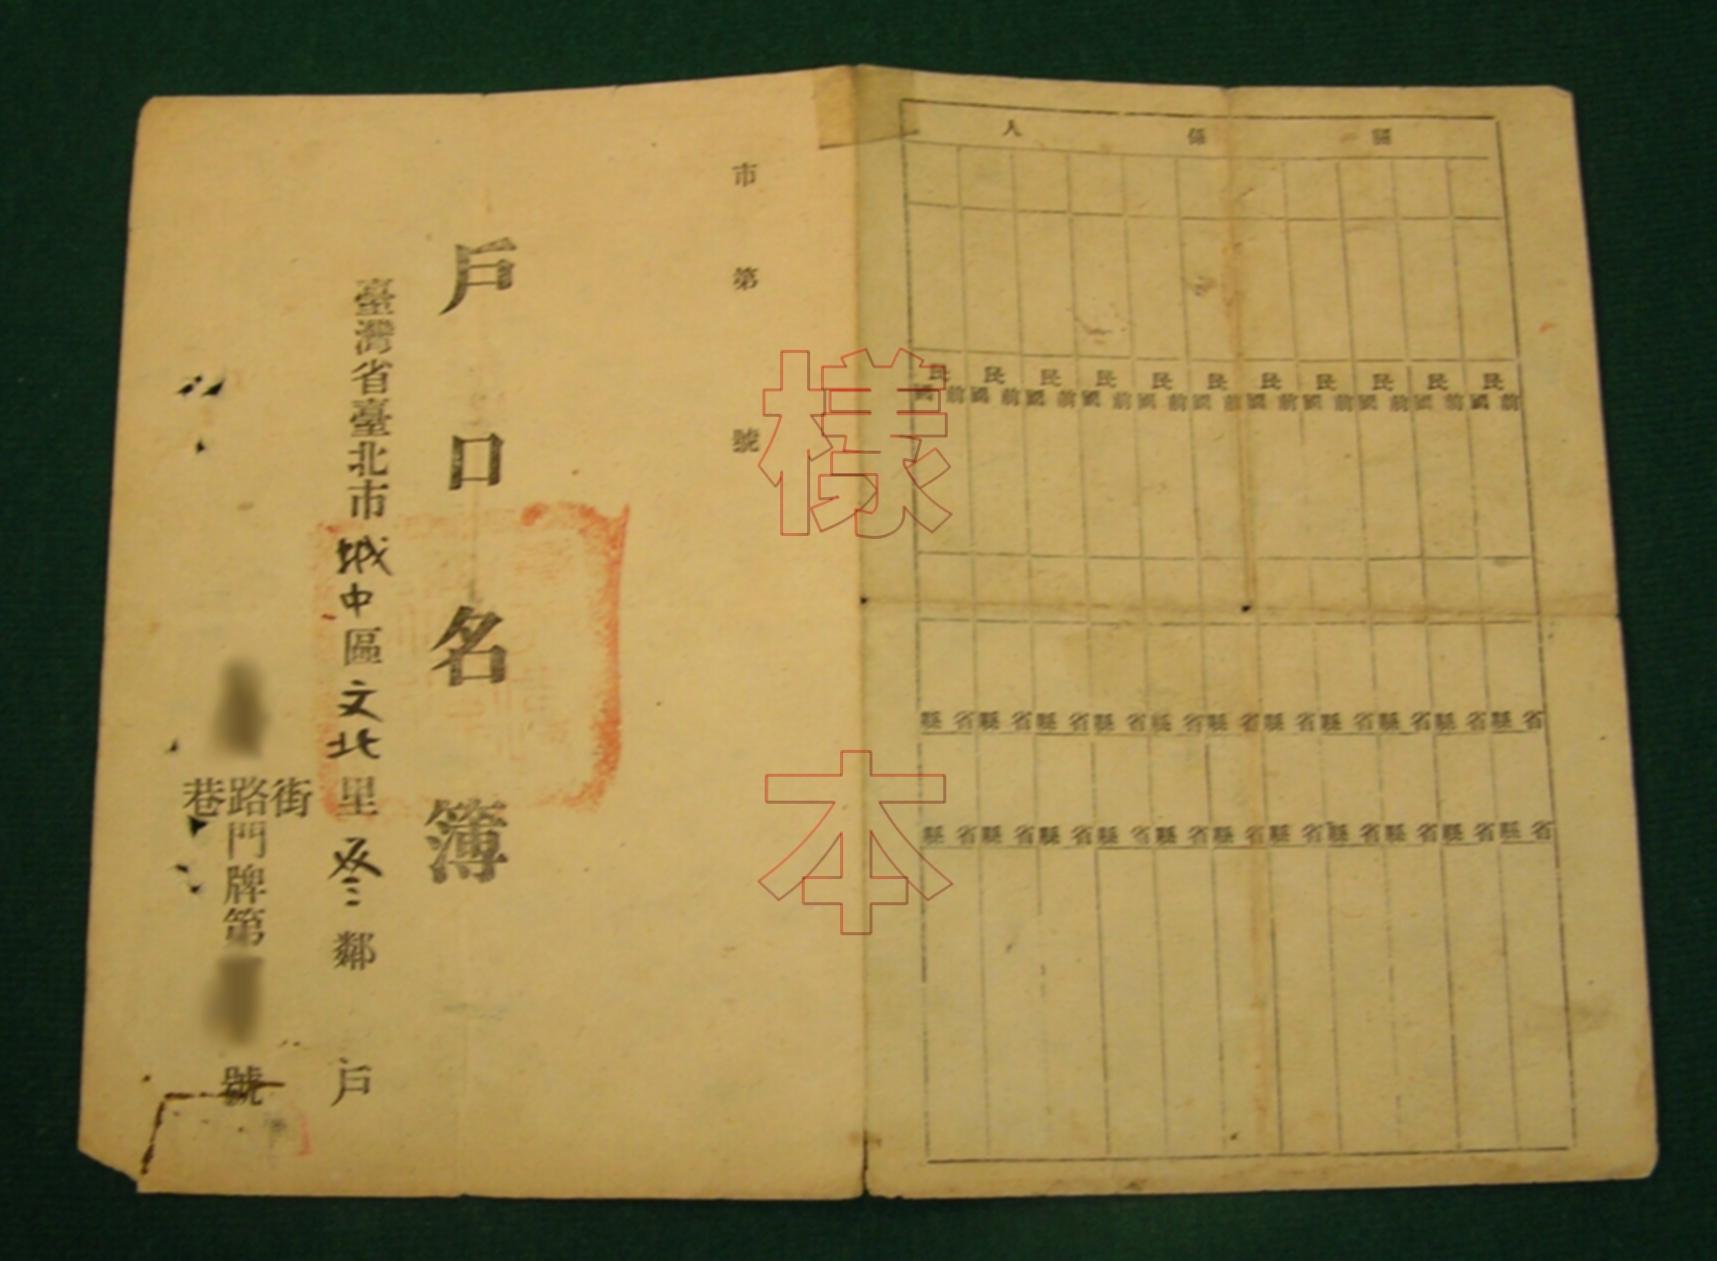 關係人
民國前 民國前 民國前 民國前 民國前 民國前 民國前 民國前 民國前 民國前 民國前
省縣 省縣 省縣 省縣 省縣 省縣 省縣 省縣 省縣 省縣 省縣
省縣 省縣 省縣 省縣 省縣 省縣 省縣 省縣 省縣 省縣 省縣
樣本
市第號
戶口名簿
臺灣省臺北市城中區文北里叁鄰戶
街路巷門牌第號